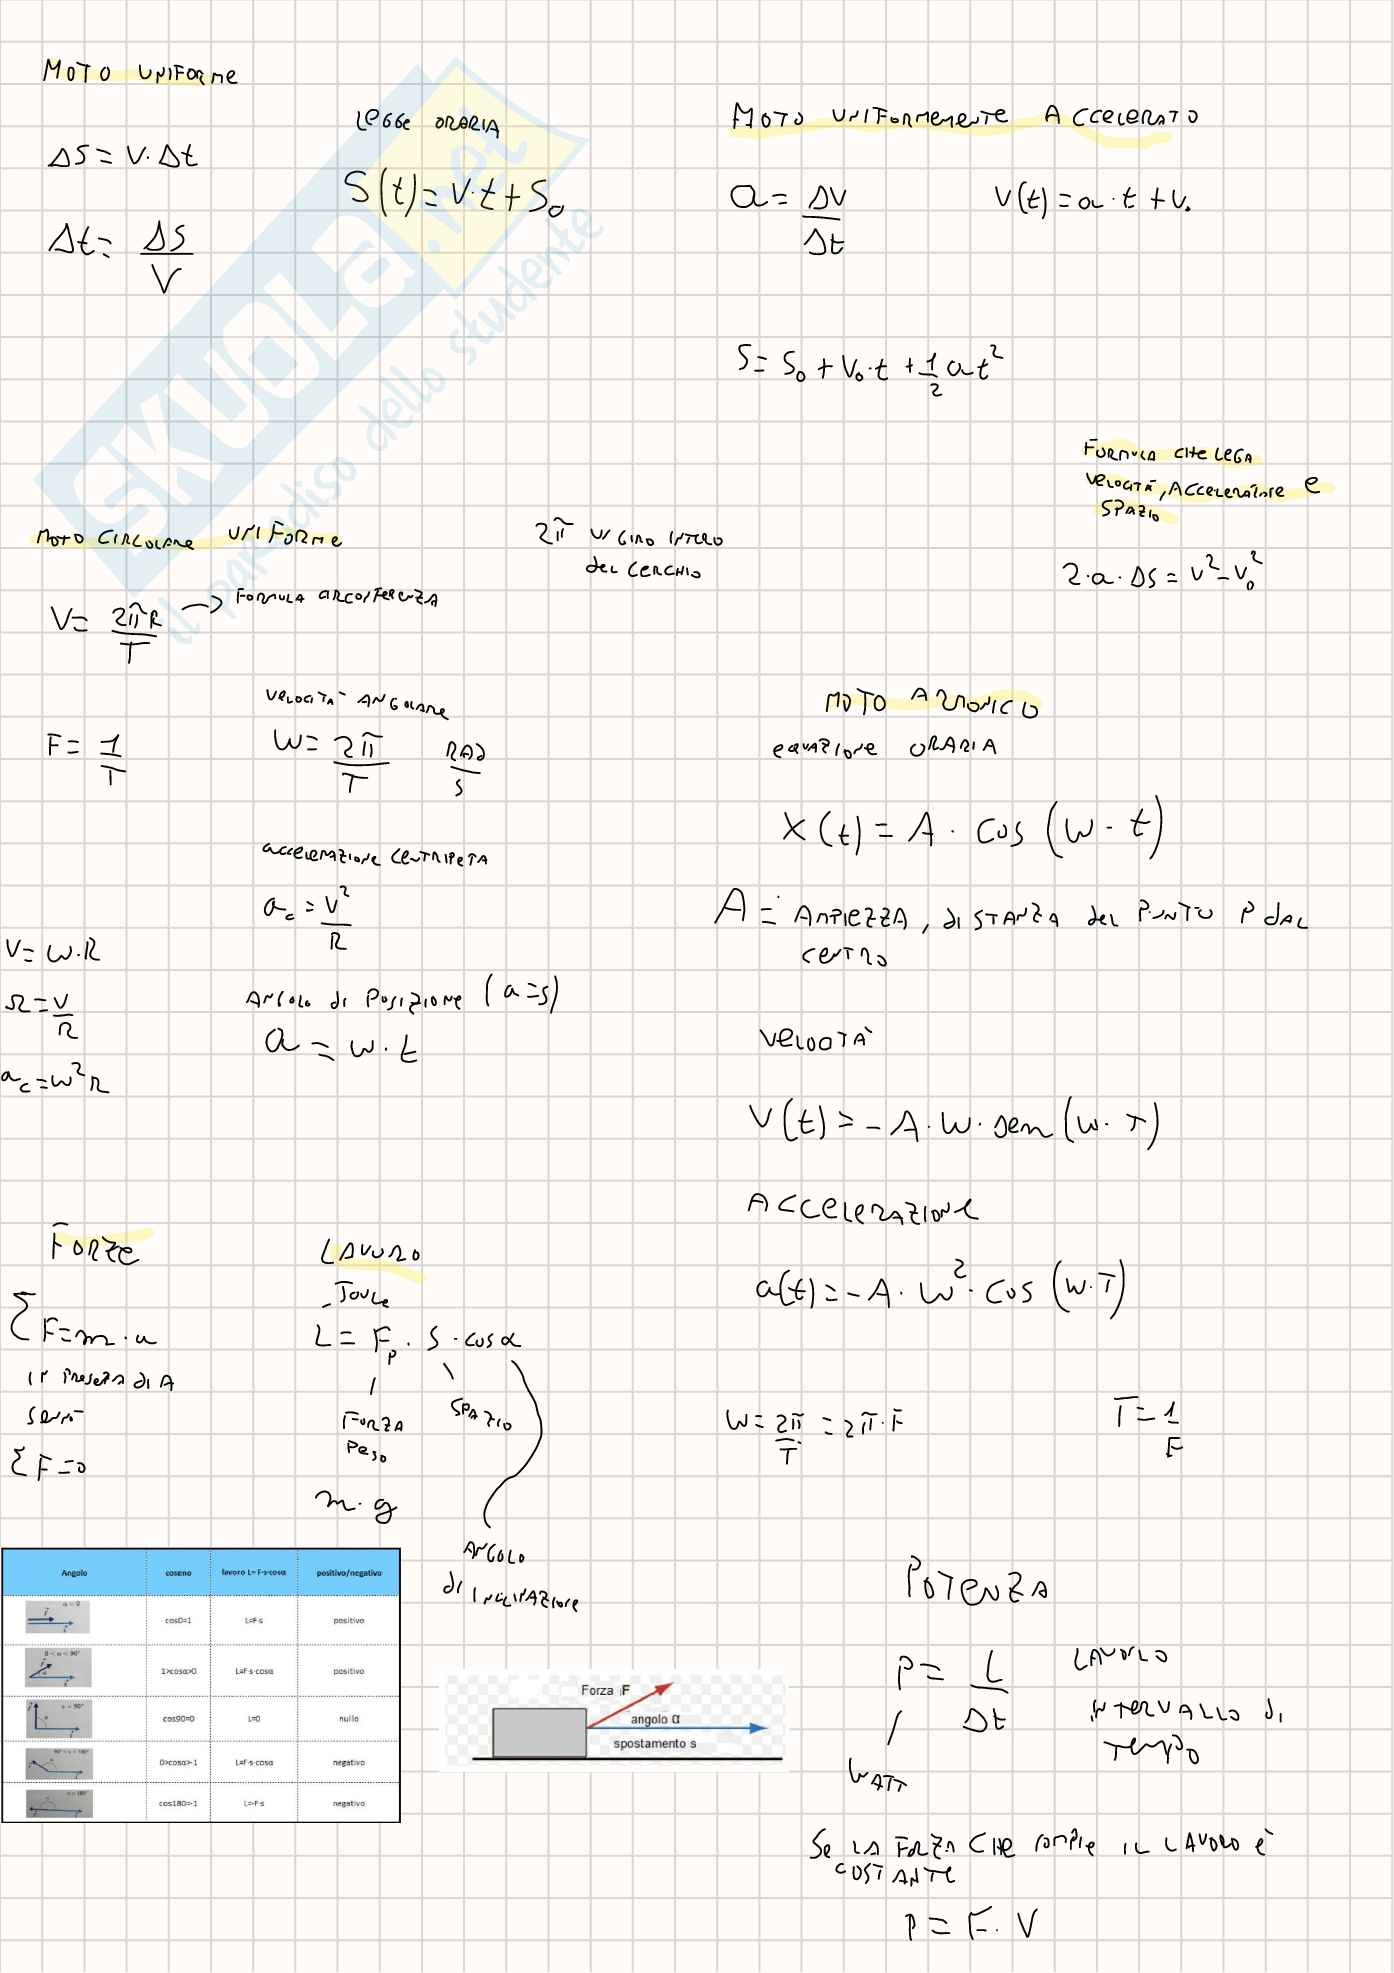 MOTO UNIFORME
ΔS = V · Δt
Δt = ΔS / V
LEGGE ORARIA
S(t) = V · t + S₀
MOTO UNIFORMEMENTE ACCELERATO
a = ΔV / Δt
V(t) = a · t + V₀
S = S₀ + V₀ · t + 1/2 a t²
FORMULA CHE LEGA
VELOCITÀ, ACCELERAZIONE E
SPAZIO
2 · a · ΔS = V² - V₀²
SKUOLA.net
il paradiso dello studente
MOTO CIRCOLARE UNIFORME
2π UN GIRO INTERO
DEL CERCHIO
V = 2πR / T → FORMULA CIRCONFERENZA
F = 1 / T
VELOCITÀ ANGOLARE
W = 2π / T RAD / S
ACCELERAZIONE CENTRIPETA
a_c = V² / R
V = W · R
Ω = V / R
a_c = W² R
ANGOLO DI POSIZIONE (a = s)
a = W · t
MOTO ARMONICO
EQUAZIONE ORARIA
X(t) = A · cos (W · t)
A = AMPIEZZA, DISTANZA DEL PUNTO P DAL
CENTRO
VELOCITÀ
V(t) = - A · W · sen (W · T)
ACCELERAZIONE
a(t) = - A · W² · cos (W · T)
W = 2π / T = 2π · F
T = 1 / F
FORZE
Σ F = m · a
IN PRESENZA DI A
Σ F = 0
LAVORO
JOULE
L = F_p · S · cos α
FORZA
PESO
SPAZIO
m · g
ANGOLO
DI INCLINAZIONE
Angolo coseno lavoro L= F·s·cosα positivo/negativo
α = 0 cos0=1 L=F·s positivo
0 < α < 90° 1>cosα>0 L=F·s·cosα positivo
α = 90° cos90=0 L=0 nullo
90° < α < 180° 0>cosα>-1 L=F·s·cosα negativo
α = 180° cos180=-1 L=-F·s negativo
Forza F
angolo α
spostamento s
POTENZA
P = L / Δt
LAVORO
INTERVALLO DI
TEMPO
WATT
SE LA FORZA CHE COMPIE IL LAVORO È
COSTANTE
P = F · V